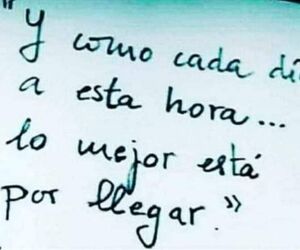 "Y como cada dí
a esta hora...
lo mejor está
por llegar."